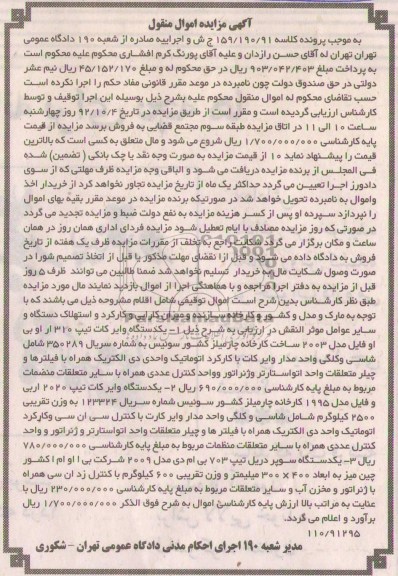 آگهی مزایده اموال منقول
به موجب پرونده کلاسه ۱۵۹/۱۹۰/۹۱ ج ش و اجراییه صادره از شعبه ۱۹۰ دادگاه عمومی
تهران تهران له آقای حسن رازدان و علیه آقای پورنگ کرم افشاری محکوم علیه محکوم است
به پرداخت مبلغ ۹۰۳/۰۴۲/۴۰۳ ریال در حق محکوم له و مبلغ ۴۵/۱۵۲/۱۷۰ ریال نیم عشر
دولتی در حق صندوق دولت چون نامبرده در موعد مقرر قانونی مفاد حکم را اجرا نکرده است
حسب تقاضای محکوم له اموال منقول محکوم علیه بشرح ذیل بوسیله این اجرا توقیف و توسط
کارشناس ارزیابی گردیده است و مقرر است از طریق مزایده در تاریخ ۹۲/۱۰/۴ روز چهارشنبه
ساعت ۱۰ الی ۱۱ در اتاق مزایده طبقه سوم مجتمع قضایی به فروش برسد مزایده از قیمت
پایه کارشناسی ۱/۷۰۰/۰۰۰/۰۰۰ ریال شروع می شود و مال متعلق به کسی است که بالاترین
قیمت را پیشنهاد نماید ۱۰ از قیمت مزایده به صورت وجه نقد یا چک بانکی ( تضمین) شده
فی المجلس از برنده مزایده دریافت می شود و الباقی وجه مزایده ظرف مهلتی که از سوی
دادورز اجرا تعیین می گردد حداکثر یک ماه از تاریخ مزایده تجاوز نخواهد کرد از خریدار اخذ
واموال به نامبرده تحویل خواهد شد در صورتیکه برنده مزایده در موعد مقرر بقیه بهای اموال
را نپردازد سپرده او پس از کسر هزینه مزایده به نفع دولت ضبط و مزایده تجدید می گردد
در صورتی که روز مزایده مصادف با ایام تعطیل شود مزایده فردای اداری همان روز در همان
ساعت و مکان برگزار می گردد شکایت راجع به تخلف از مقررات مزایده ظرف یک هفته از تاریخ
فروش به دادگاه داده می شود و قبل از انقضای مهلت مذکور یا قبل از اتخاذ تصمیم شورا در
صورت وصول شکایت مال به خریدار تسلیم نخواهد شد ضمنا طالبین می توانند ظرف ۵ روز
قبل از مزایده به دفتر اجرا مراجعه و با هماهنگی اجرا از اموال بازدید نمایند مال مورد مزایده
طبق نظر کارشناس بدین شرح است اموال توقیفی شامل اقلام مشروحه ذیل می باشند که با
توجه به مارک و مدل و کشور و کارخانه سازنده و میزان کارایی و کارکرد و استهلاک دستگاه و
سایر عوامل موثر النقش در ارزیابی به شرح ذیل ۱- یکدستگاه وایر کات تیپ ۳۱۰ ار او بی
او فایل مدل ۲۰۰۳ ساخت کارخانه چارمیلز کشور سوئیس به شماره سریال ۳۵۰۲۸۹ شامل
شاسی وکلگی واحد مدار وایر کات با کارکرد اتوماتیک واحدی دی الکتریک همراه با فیلترها و
چیلر متعلقات واحد اتواستارتر وژنراتور وواحد کنترل عددی همراه با سایر متعلقات منضمات
مربوط به مبلغ پایه کارشناسی ۶۹۰/۰۰۰/۰۰۰ ریال ۲- یکدستگاه وایر کات تیپ ۲۰۲۰ اربی
و فایل مدل ۱۹۹۵ کارخانه چارمیلز کشور سوئیس شماره سریال ۱۲۳۳۲۴ به وزن تقریبی
۲۵۰۰ کیلوگرم شامل شاسی و کلگی واحد مدار وایر کارت با کنترل سی ان سی وکارکرد
اتوماتیک واحد دی الکتریک همراه با فیلتر ها و چیلر متعلقات واحد اتواستارتر و ژنراتور و واحد
کنترل عددی همراه با سایر متعلقات منظمات مربوط به مبلغ پایه کارشناسی ۷۸۰/۰۰۰/۰۰۰
ریال ۳- یکدستگاه سوپر دریل تیپ ۷۰۳ بی ام دی مدل ۲۰۰۹ شرکت بی ا او ام ا کشور
چین میز به ابعاد ۴۰۰ × ۳۰۰ میلیمتر و وزن تقریبی ۶۰۰ کیلوگرم با کنترل زد ان سی همراه
با ژنراتور و مخزن آب و سایر متعلقات مربوط به مبلغ پایه کارشناسی ۲۳۰/۰۰۰/۰۰۰ ریال با
عنایت به مراتب بالا ارزش پایه کارشناسی اموال به شرح فوق الذکر ۱/۷۰۰/۰۰۰/۰۰۰ ریال
برآورد و اعلام می گردد.
۱۱۰/۹۱۲۹۵
مدیر شعبه ۱۹۰ اجرای احکام مدنی دادگاه عمومی تهران - شکوری